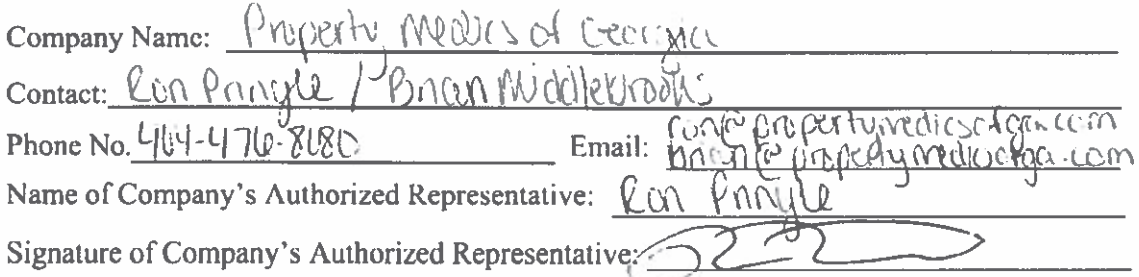 Company Name: Property Medics of Georgia
Contact: Ron Pringle / Brian Middlebrooks
Phone No. Email: ron@propertymedicsofga.com
brian@propertymedicsofga.com
Name of Company's Authorized Representative: Ron Pringle
Signature of Company's Authorized Representative: